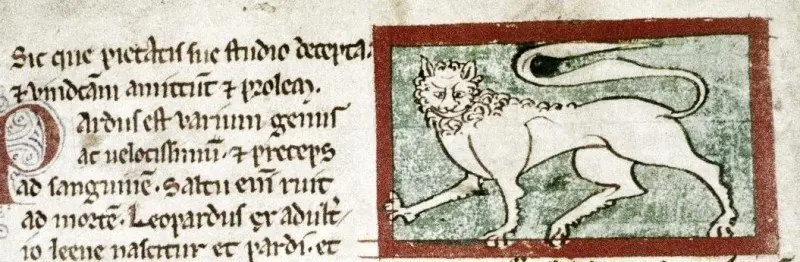 Sic que pietatis sue studio decepta
⁊ vindcãm amittũt ⁊ prolem.
Pardus est varium genus
ac uelocissimũ ⁊ preceps
ad sanguinẽ. Saltu eni ruit
ad mortẽ. Leopardus ex adult̾
io leene nascitur et pardi. et